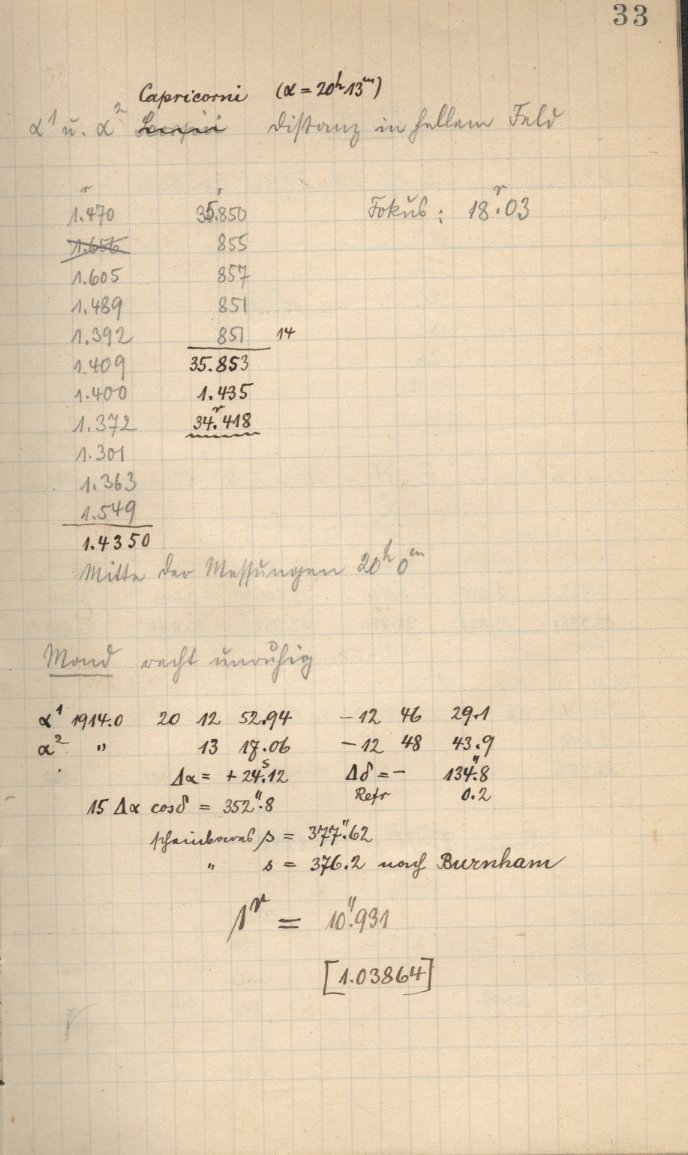 33
Capricorni (α = 20ʰ13ᵐ)
α¹ u. α² Distanz in hellem Feld
1.470ʳ 35.850ʳ Fokus: 18ʳ.03
1.656 855
1.605 857
1.489 851
1.392 851 14
1.409 35.853
1.400 1.435
1.372 34ʳ.418
1.301
1.363
1.549
1.4350
Mitte der Messungen 20ʰ 0ᵐ
Mond recht unruhig
α¹ 1914.0 20 12 52.94 −12 46 29.1
α² " 13 17.06 −12 48 43.9
Δα = + 24ˢ.12 Δδ = − 134".8
Refr 0.2
15 Δα cosδ = 352".8
scheinbares s = 377".62
" s = 376.2 nach Burnham
1ʳ = 10".931
[1.03864]